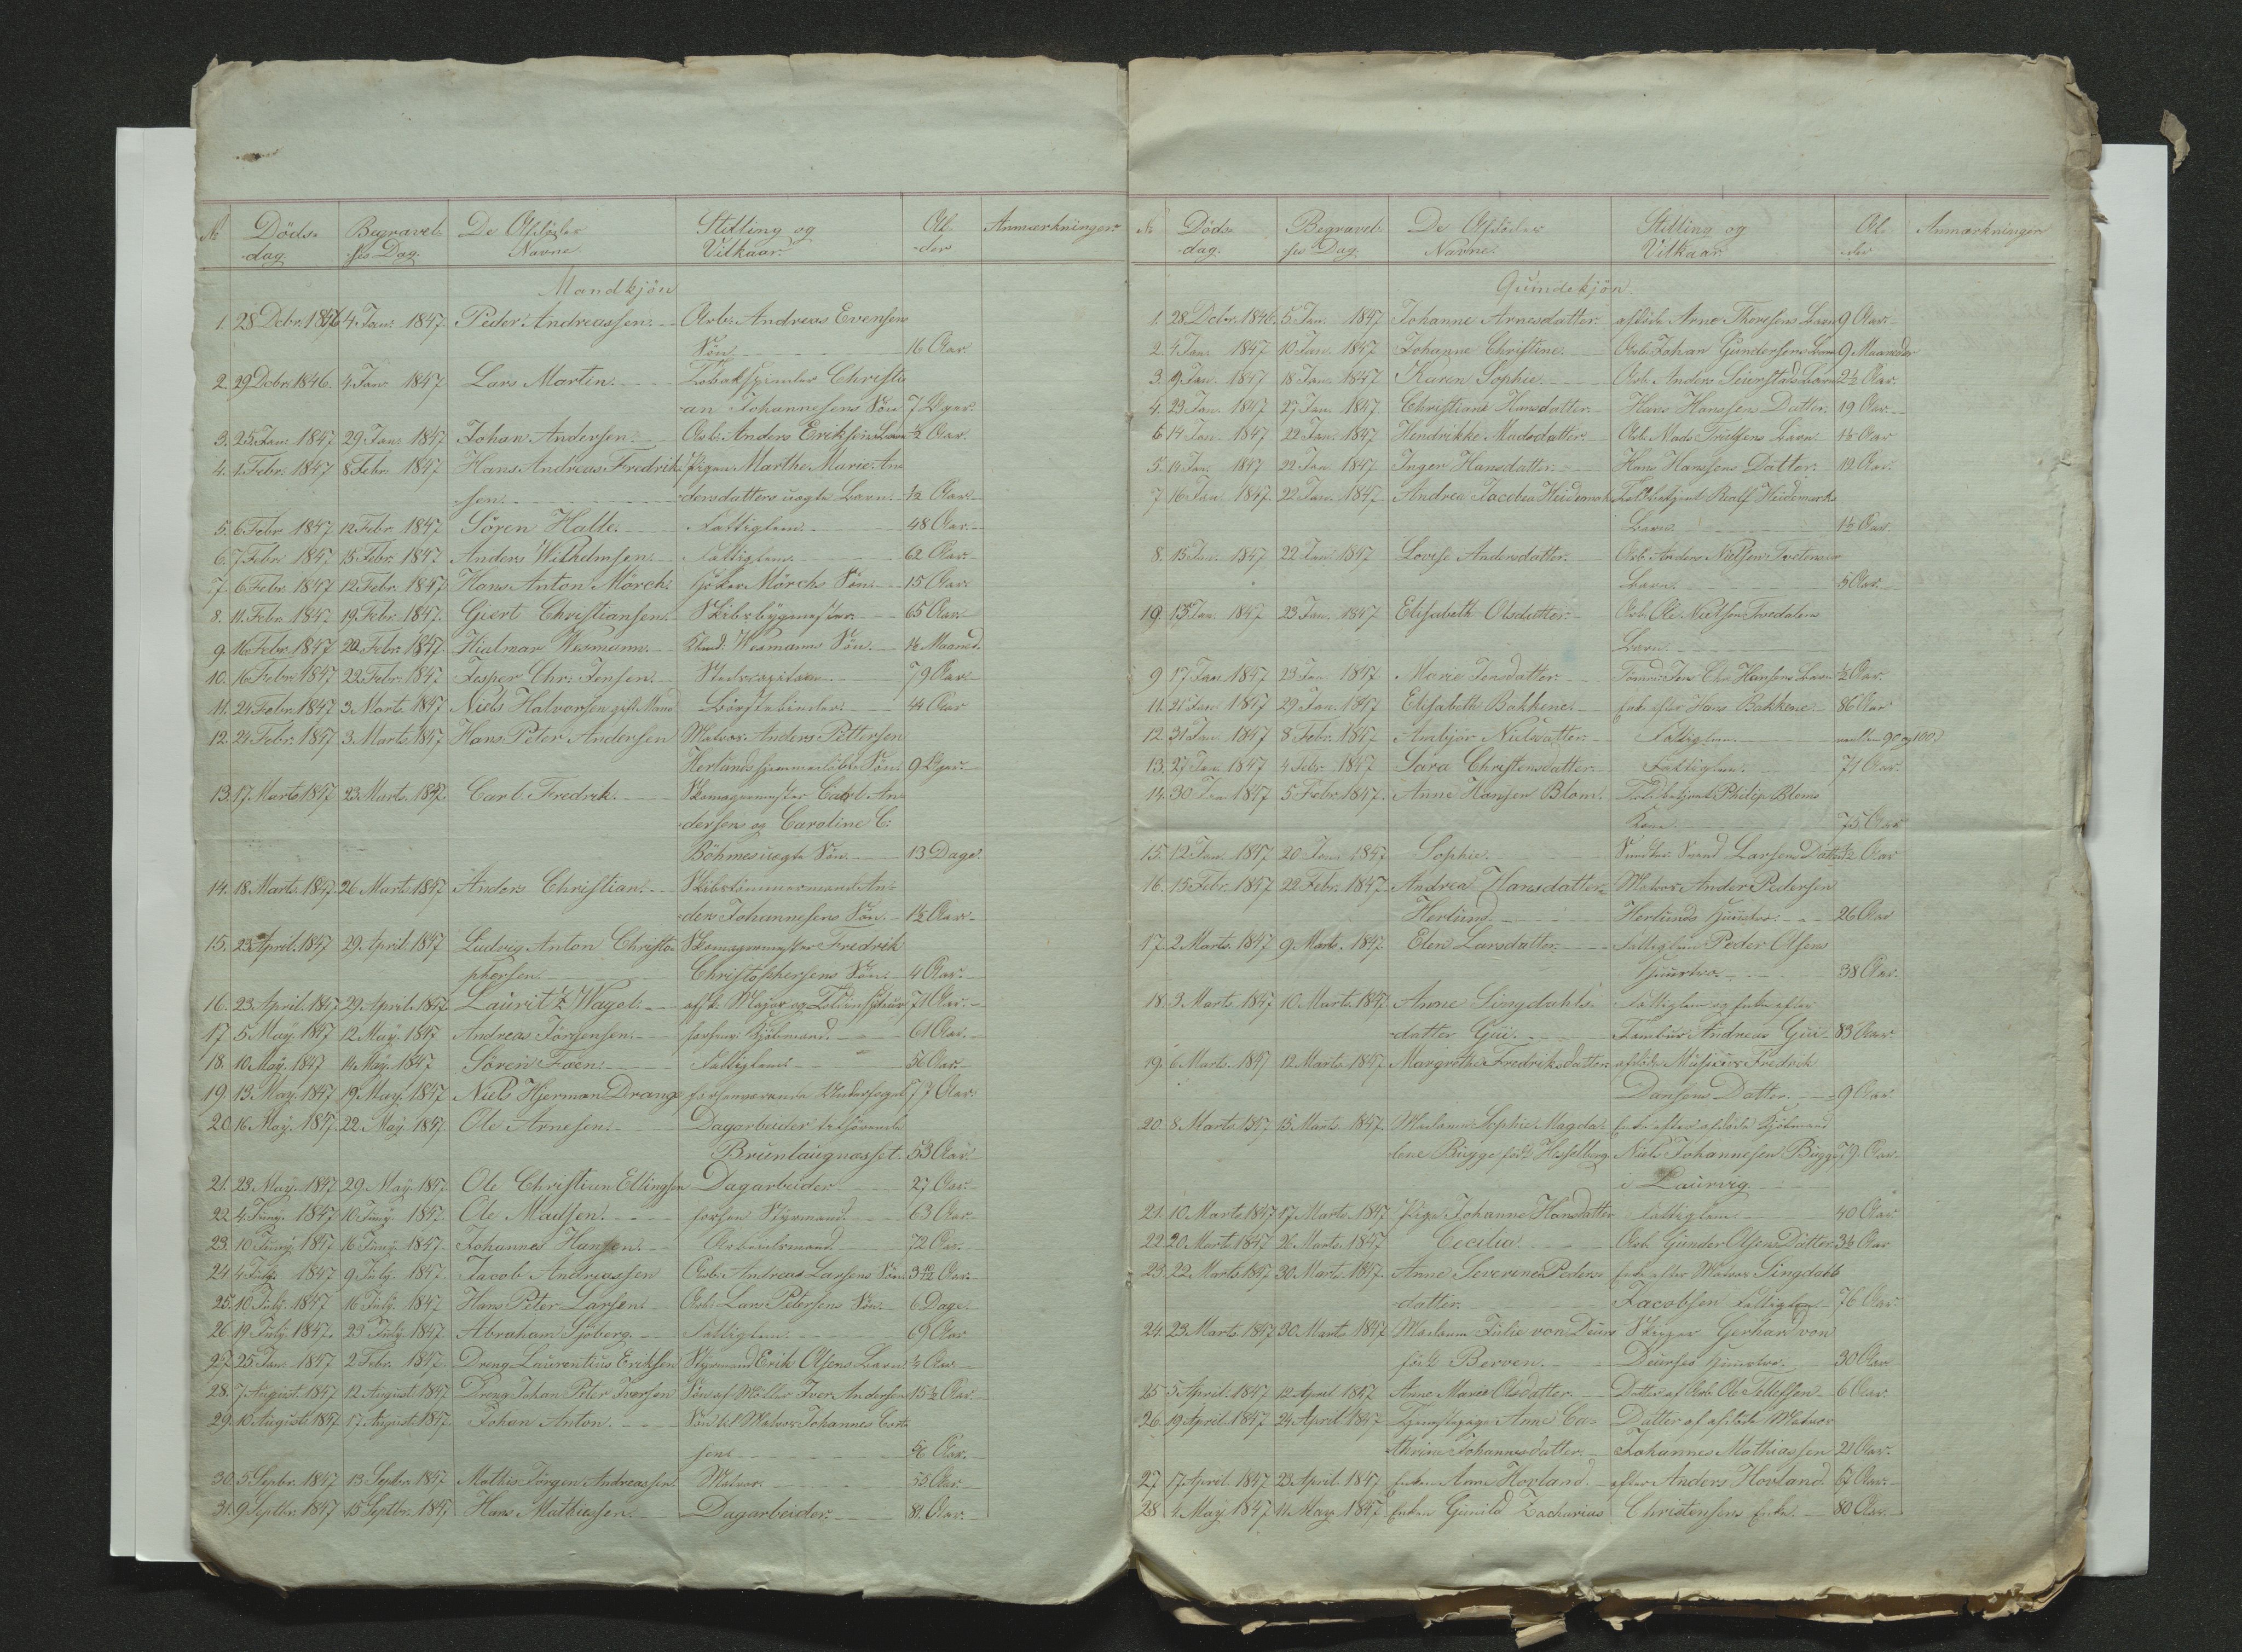 No Döds- Begravel- De Afdödes Stilling og Al- Anmærkninger
dag. ses Dag. Navne Vilkaar. der
Mandkjön
1. 28 Debr. 1846 4 Jan: 1847. Peder Andreassen. Arb: Andreas Evensens
Sön 16 Aar.
2. 29 Debr. 1846. 4 Jan: 1847 Lars Martin. Tobakspinder Christi
an Johannesens Sön 7 Uger.
3. 25 Jan: 1847 29 Jan: 1847 Johan Andersen. Arb: Anders Eriksens Barn ½ Aar.
4. 1. Febr: 1847 8 Febr: 1847 Hans Andreas Fredrik Pigen Marthe Marie An
sen. dersdatters uægte Barn. ½ Aar.
5. 6 Febr 1847 12 Febr. 1847 Sören Halle. Fattiglem. 48 Aar.
6. 7 Febr 1847 15 Febr. 1847 Anders Wilhelmsen. Fattiglem. 62 Aar.
7 6 Febr. 1847 12 Febr. 1847 Hans Anton Mörch. Mörchs Sön. 15 Aar.
8. 11. Febr. 1847 19 Febr. 1847. Giert Christiansen. Skibsbygmester 65 Aar.
9 16 Febr 1847 22 Febr. 1847. Hialmar Wesmann. Wesmanns Sön. 1½ Maaned.
10. 16 Febr 1847 22 Febr. 1847. Jesper Chr: Jensen. 79 Aar
11. 24 Febr. 1847 3. Marts. 1847 Niels Halvorsen gift Mand Börstebinder. 44 Aar
12. 24 Febr. 1847 3 Marts. 1847 Hans Peter Andersen Matros Anders Pettersen
Herlunds hjemmedöbte Sön. 9 Uger.
13. 17. Marts 1847 23 Marts. 1847. Carl Fredrik. Skomagermester Carl An
dersens og Caroline C:
Böhmes uægte Sön. 13 Dage.
14. 18. Marts. 1847. 26 Marts. 1847 Anders Christian. Skibstömmermand An-
ders Johannesens Sön. 1½ Aar
15. 23 April. 1847 29. April. 1847 Ludvig Anton Christo Skomagermester Fredrik
phersen. Christophersens Sön. 4 Aar.
16. 23. April. 1847 29. April. 1847. Lauritz Wagel. afsk. Major og 71 Aar.
17 5 May. 1847 12 May. 1847 Andreas Jörgensen. forhen Kjöbmand. 61 Aar.
18. 10 May. 1847 14 May. 1847 Sören Foen. Fattiglem. 56 Aar.
19. 13. May. 1847 19 May. 1847 Niels Hjerman Drange forhenværende Underfoged 77 Aar.
20 16 May. 1847. 22 May. 1847 Ole Arnesen. Dagarbeider tilhörende
Brunlaugnæsset. 53 Aar.
21. 23. May. 1847 29. May. 1847. Ole Christian Ellingsen Dagarbeider 27 Aar.
22 4. Juny. 1847 10 Juny. 1847. Ole Madsen. forhen Styrmand. 63 Aar.
23. 10 Juny. 1847 16 Juny. 1847. Johannes Hansen. Arbeidsmand. 72 Aar.
24 4 July. 1847 9 July. 1847. Jacob Andreassen Arb: Andreas Larsens Sön Aar.
25. 10 July. 1847 16 July. 1847 Hans Peter Larsen. Arb: Lars Petersens Sön. 6 Dage.
26. 19 July. 1847. 23 July. 1847 Abraham Sjöberg. Fattiglem. 69 Aar
27 25 Jan. 1847 2 Febr. 1847. Dreng Laurentius Eriksen Styrmand Erik Olsens Barn ½ Aar.
28. 7 August. 1847 12 August. 1847 Dreng Johan Peter Iversen Sön af Möller Iver Andersen 15½ Aar.
29. 10 August. 1847 17 August. 1847. Johan Anton. Sön til Matros Johannes
sens Aar.
30. 5 Septbr. 1847 13 Septbr. 1847 Mathis Jörgen Andreassen. Matros. 55 Aar.
31. 9 Septbr. 1847 15 Septbr. 1847 Hans Mathiassen. Dagarbeider. 81. Aar.
No Döds- Begravel- De Afdödes Stilling og Al- Anmærkninger
dag. ses Dag. Navne. Vilkaar. der
Qvindekjön.
1. 28 Debr. 1846. 5 Jan. 1847 Johanne Arnesdatter. afdöde Arne Thoresens Barn 9 Aar.
2. 4 Jan. 1847 10 Jan. 1847 Johanne Christine. Arb. Johan Gundersens Barn 9 Maaneder
3. 9 Jan. 1847 18 Jan. 1847 Karen Sophie. Arb. Anders Barn 2½ Aar.
4. 23 Jan. 1847 27 Jan. 1847. Christiane Hansdatter. Hans Hanssens Datter. 19 Aar.
6 14 Jan. 1847 22 Jan. 1847 Hendrikke Madsdatter. Arb. Mads Truelsens Barn. 1½ Aar
5. 14 Jan. 1847 22 Jan. 1847 Inger Hansdatter. Hans Hanssens Datter. 12 Aar.
7 16 Jan. 1847. 22 Jan. 1847 Andrea Jacobea Heidemark Toldbetjent Heidemarks
Barn. 1½ Aar.
8. 15 Jan. 1847 22 Jan. 1847 Lovise Andersdatter. Arb. Anders Nielsen
Barn. 5 Aar.
19. 13 Jan. 1847 23 Jan. 1847 Elisabeth Olsdatter. Arb. Ole Nielsen
Barn.
9 17 Jan. 1847 23 Jan 1847 Marie Jensdatter. Tömmr. Jens Chr. Hansens Barn ½ Aar.
11. 21 Jan. 1847 29 Jan. 1847 Elisabeth Bakkene. Enke efter Hans Bakkene. 86 Aar
12. 31 Jan. 1847 8 Febr. 1847 Anbjör Nielsdatter. Fattiglem. mellem 90 og 100.
13. 27 Jan. 1847 4 Febr. 1847 Sara Christensdatter. Fattiglem. 71 Aar.
14. 30 Jan. 1847 5 Febr. 1847. Anne Hansen Blom. Toldbetjent Philip Bloms
Kone. 75 Aar
15. 12 Jan. 1847 20 Jan. 1847 Sophie. Svend Larsens Datter ½ Aar
16. 15 Febr. 1847 22 Febr. 1847. Andrea Hansdatter Matros Ander Pedersen
Herlund. Herlunds Huustro. 26 Aar
17. 2. Marts. 1847 9 Marts. 1847. Elen Larsdatter. Fattiglem Peder Olsens
Huustro. 38 Aar.
18. 3. Marts. 1847 10 Marts. 1847. Anne Siongdahls- Fattiglem og Enke efter
datter Gui. Tambur Andreas Gui 83 Aar.
19. 6 Marts. 1847 12 Marts. 1847. Margrethe Fredriksdatter. afdöde Musicus Fredrik
Dansens Datter. 9 Aar
20 8 Marts. 1847 15 Marts. 1847. Madame Sophie Magda- Enke efter afdöde Kjöbmand
lene Bugge född Hesselberg Niels Johannesen Bugge 79. Aar.
i Laurvig.
21. 10 Marts 1847 17 Marts. 1847 Pige Johanne Hansdatter Fattiglem. 40 Aar
22 20 Marts 1847 26 Marts. 1847 Cecilia. Arb. Gunder Olsens Datter. 3½ Aar
23. 22. Marts. 1847 30 Marts. 1847. Anne Severine Peders- Enke efter Matros Singdahl
datter. Jacobsen Fattiglem 76 Aar.
24. 23. Marts. 1847 30 Marts. 1847 Madam Julie von Deurs Skipper Gerhard von
född Berven. Deurses Huustro. 30 Aar
25 5 April. 1847 12 April 1847 Anne Marie Olsdatter. Datter af Arb. Ole Tellefsen 6 Aar.
26. 19 April. 1847 24 April 1847 Tjenestepige Anne Ca- Datter af afdöde Matros
thrine Johannesdatter. Johannes Mathiassen 21 Aar.
27 17 April 1847 23 April. 1847 Enken Anne Hovland. efter Anders Hovland. 67 Aar.
28 4. May 1847 11. May 1847 Enken Gunild Zacharias Christensens Enke. 80 Aar.